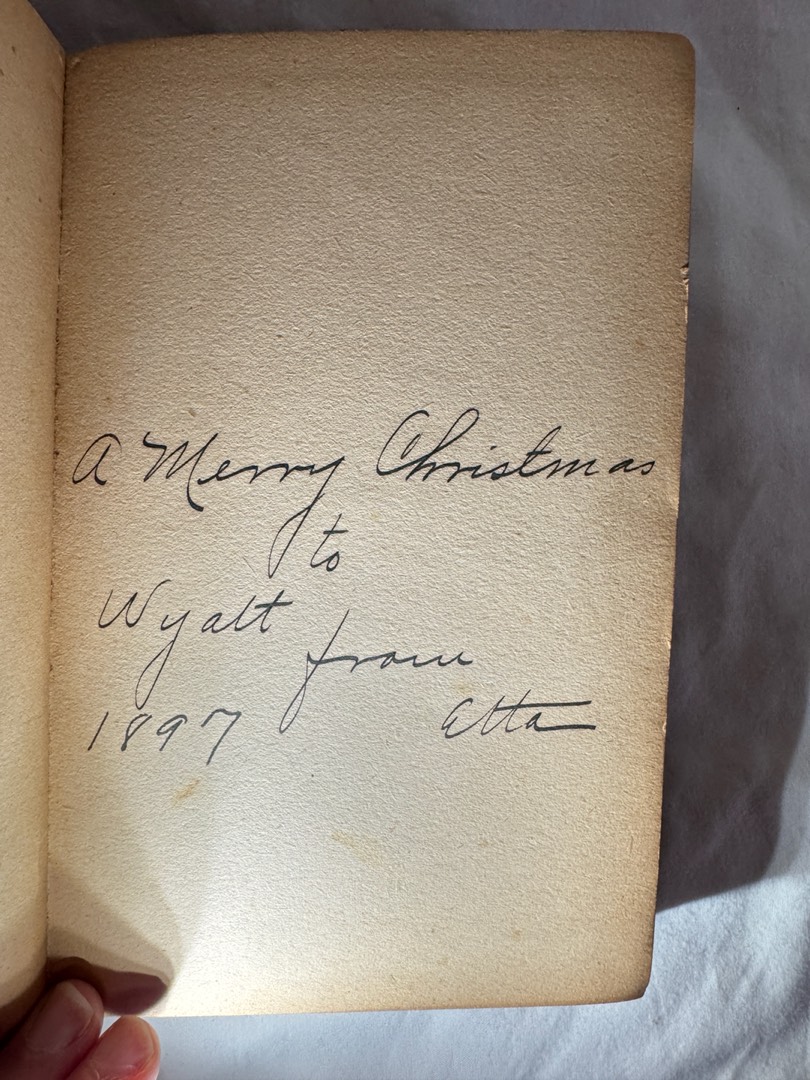 A Merry Christmas
to
Wyatt
from
1897 Etta